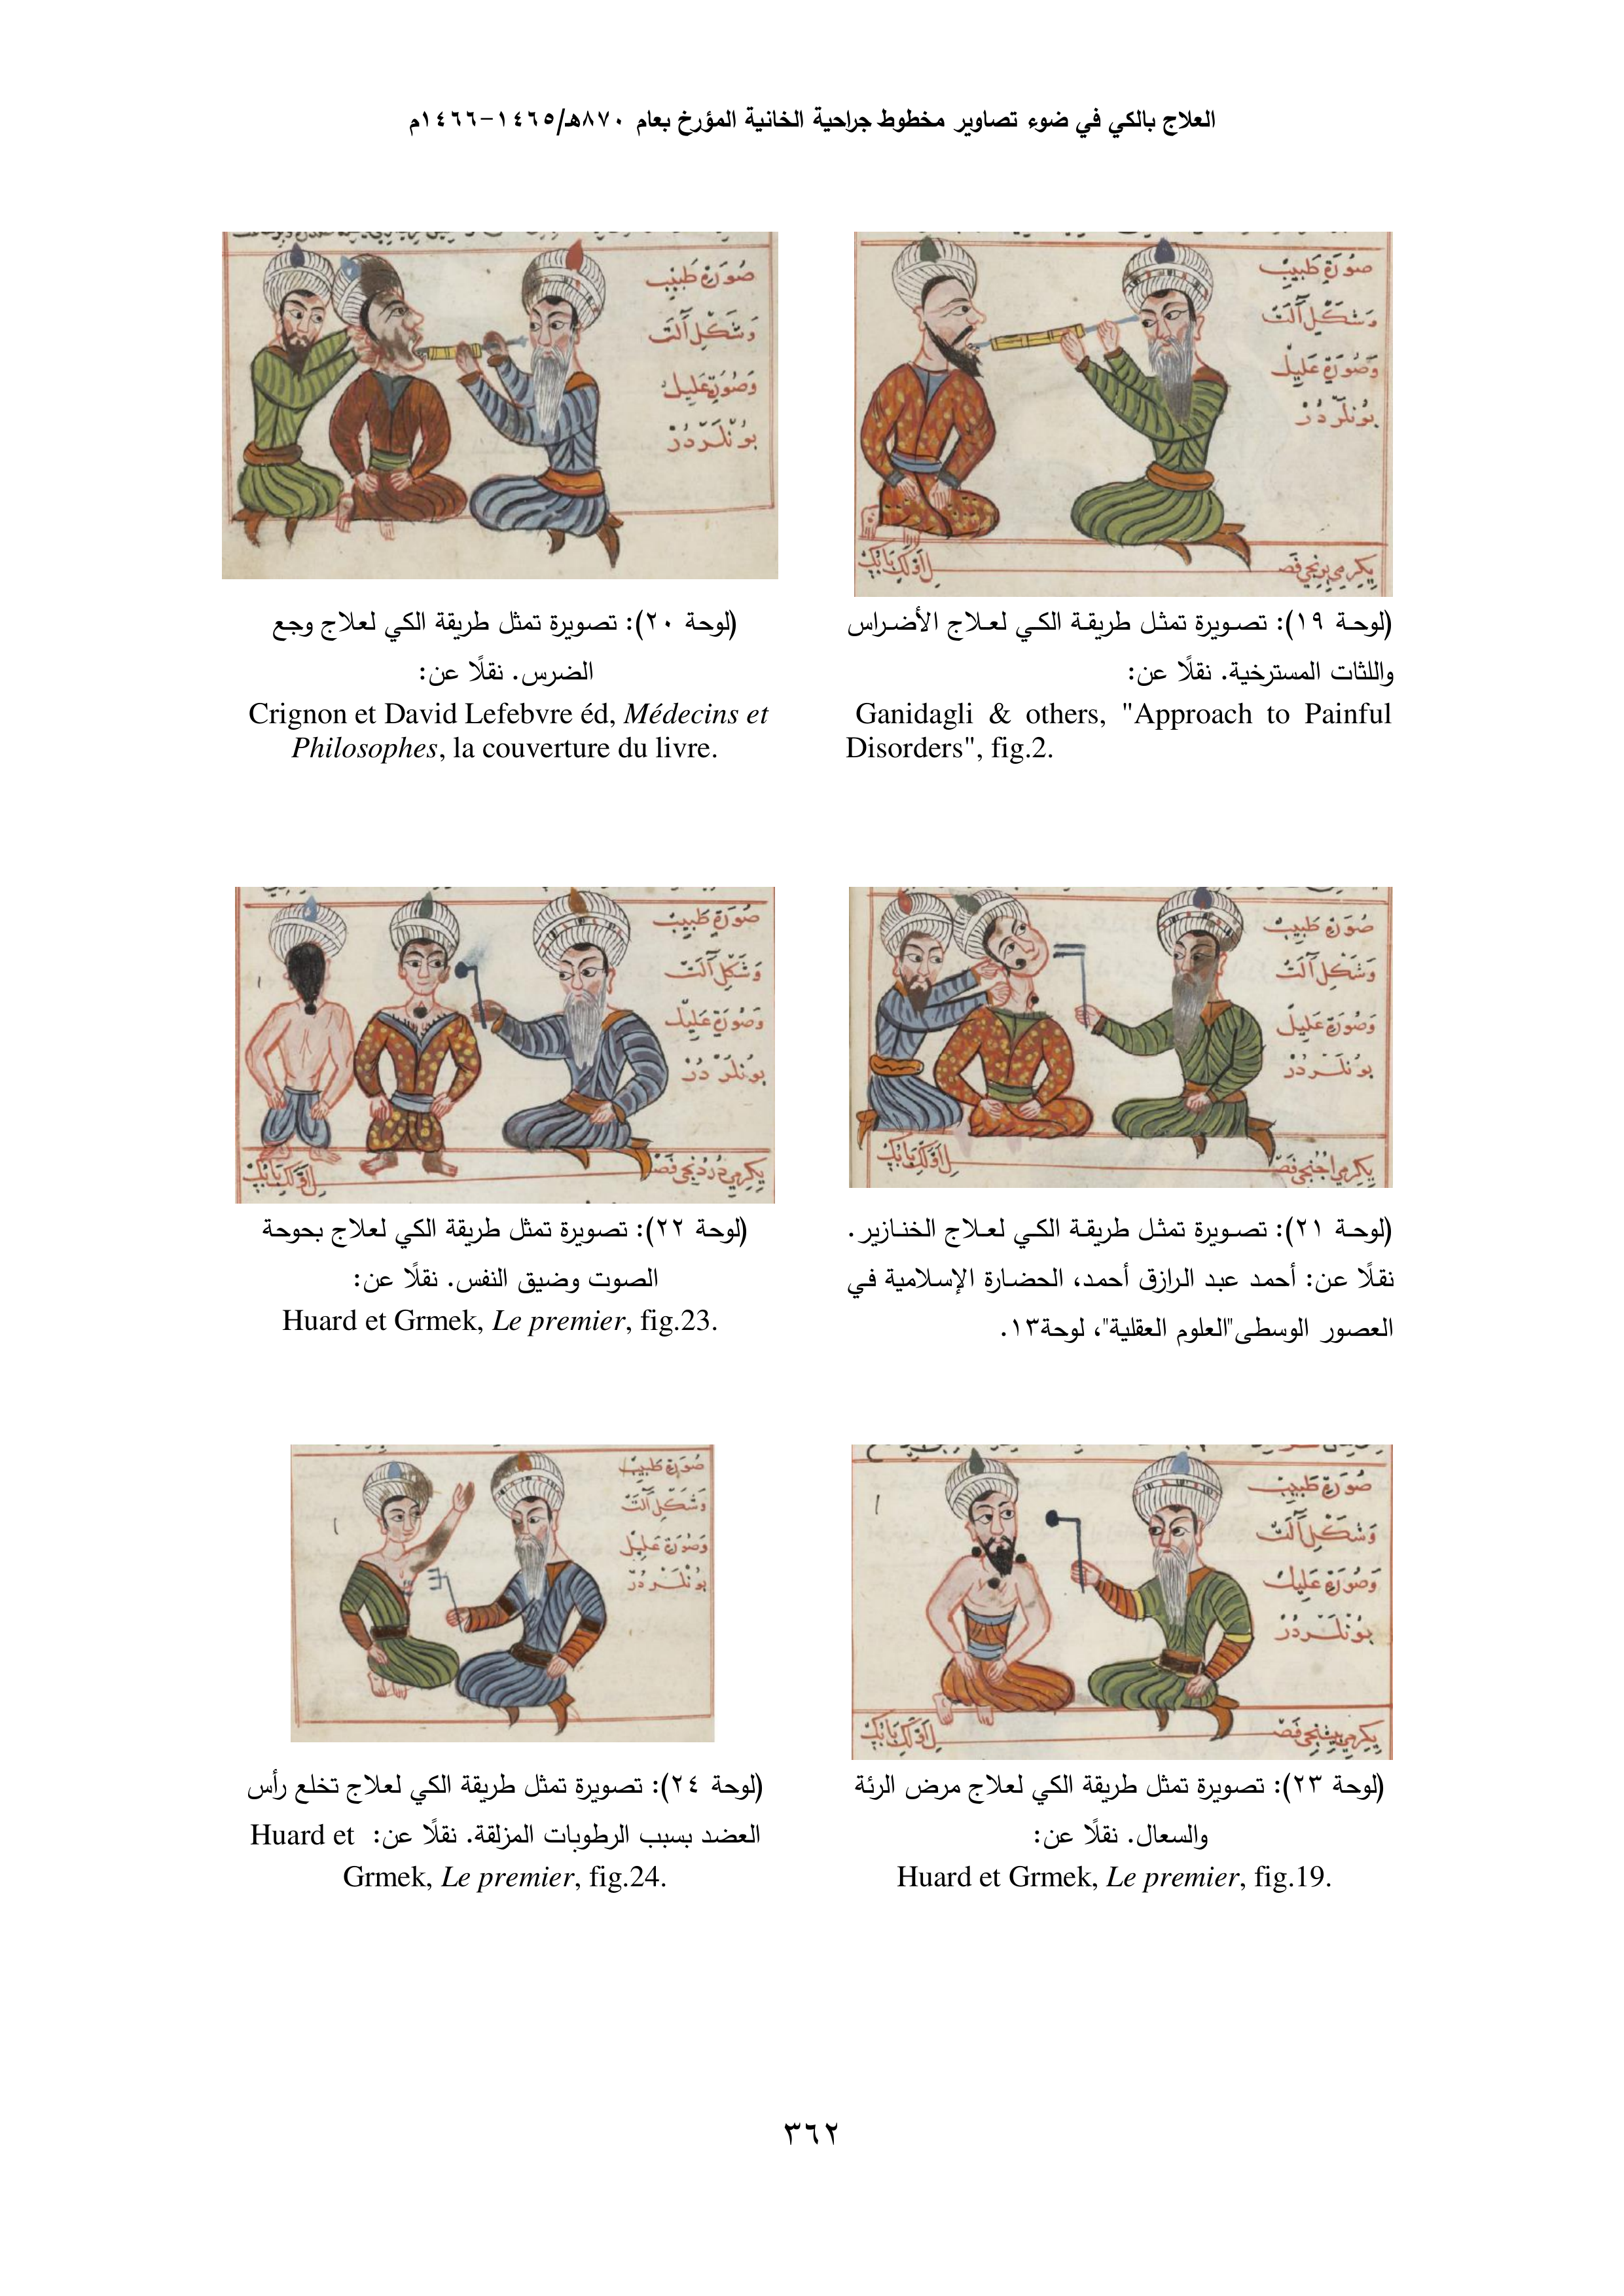 العلاج بالكي في ضوء تصاوير مخطوط جراحية الخانية المؤرخ بعام ٨٧٠هـ/١٤٦٥-١٤٦٦م
صورة طبيب
وشكل آلت
وصورة عليل
بونلردر
(لوحة ١٩): تصويرة تمثل طريقة الكي لعلاج الأضراس
واللثات المسترخية. نقلًا عن:
Ganidagli & others, "Approach to Painful
Disorders", fig.2.
صورة طبيب
وشكل آلت
وصورة عليل
بونلردر
(لوحة ٢٠): تصويرة تمثل طريقة الكي لعلاج وجع
الضرس. نقلًا عن:
Crignon et David Lefebvre éd, Médecins et
Philosophes, la couverture du livre.
صورة طبيب
وشكل آلت
وصورة عليل
بونلردر
(لوحة ٢١): تصويرة تمثل طريقة الكي لعلاج الخنازير.
نقلًا عن: أحمد عبد الرازق أحمد، الحضارة الإسلامية في
العصور الوسطى"العلوم العقلية"، لوحة١٣.
صورة طبيب
وشكل آلت
وصورة عليل
بونلردر
(لوحة ٢٢): تصويرة تمثل طريقة الكي لعلاج بحوحة
الصوت وضيق النفس. نقلًا عن:
Huard et Grmek, Le premier, fig.23.
صورة طبيب
وشكل آلت
وصورة عليل
بونلردر
(لوحة ٢٣): تصويرة تمثل طريقة الكي لعلاج مرض الرئة
والسعال. نقلًا عن:
Huard et Grmek, Le premier, fig.19.
صورة طبيب
وشكل آلت
وصورة عليل
بونلردر
(لوحة ٢٤): تصويرة تمثل طريقة الكي لعلاج تخلع رأس
العضد بسبب الرطوبات المزلقة. نقلًا عن: Huard et
Grmek, Le premier, fig.24.
٣٦٢